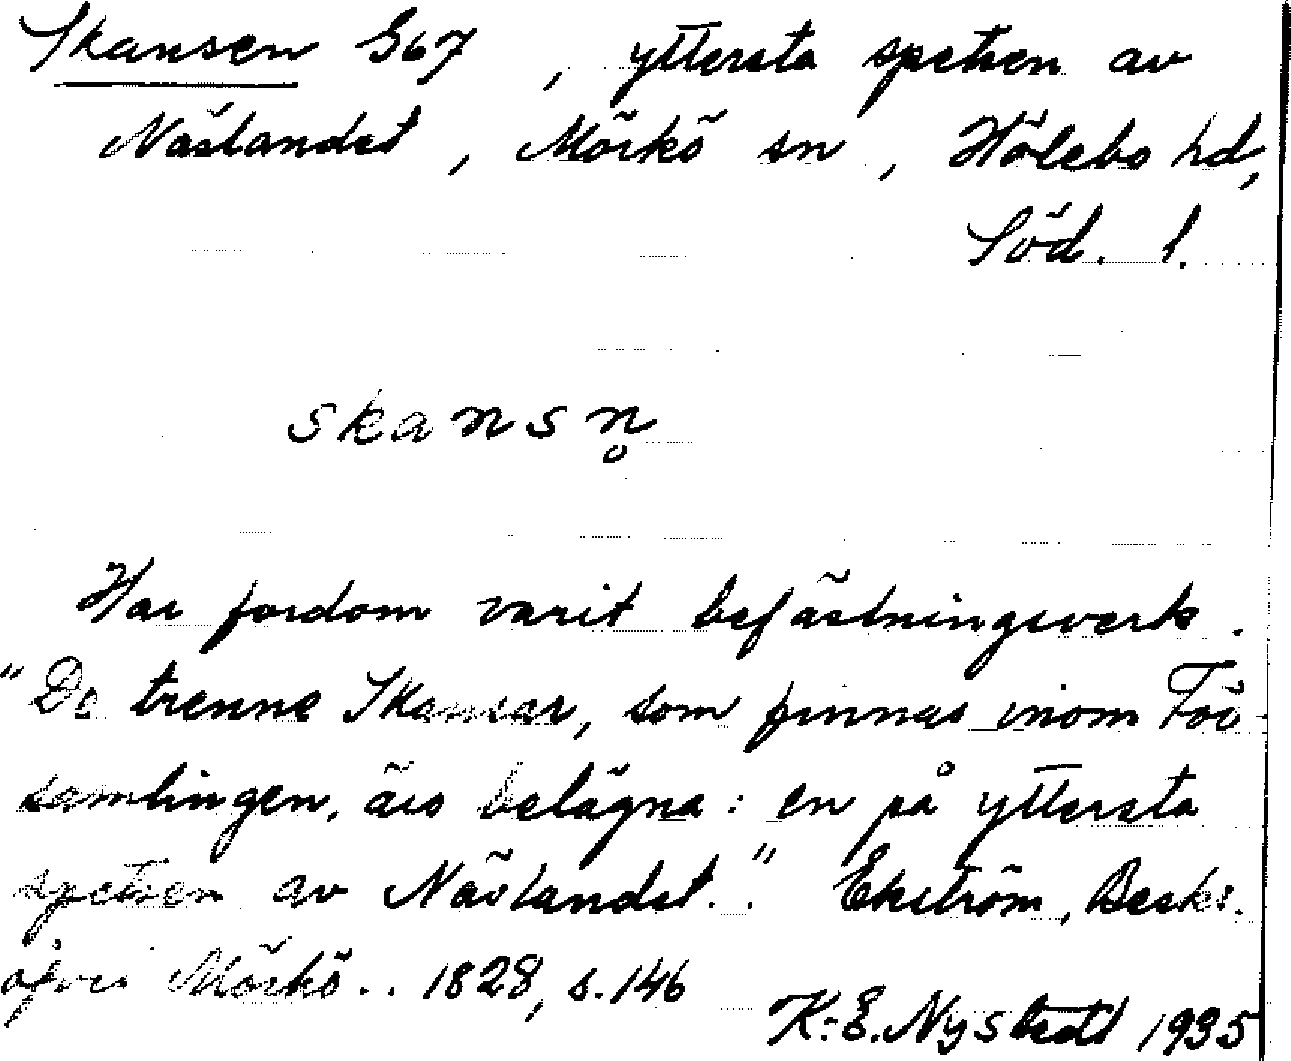 Skansen G67, yttersta spetsen av
Näslandet, Mörkö sn, Hölebo hd,
Söd. l.
skansn̥
Har fordom varit befästningsverk.
"De trenne Skansar, som finnas inom För-
samlingen, äro belägna: en på yttersta
spetsen av Näslandet.." Ekström, Beskr.
öfver Mörkö.. 1828, s. 146
K.-E. Nystedt 1935